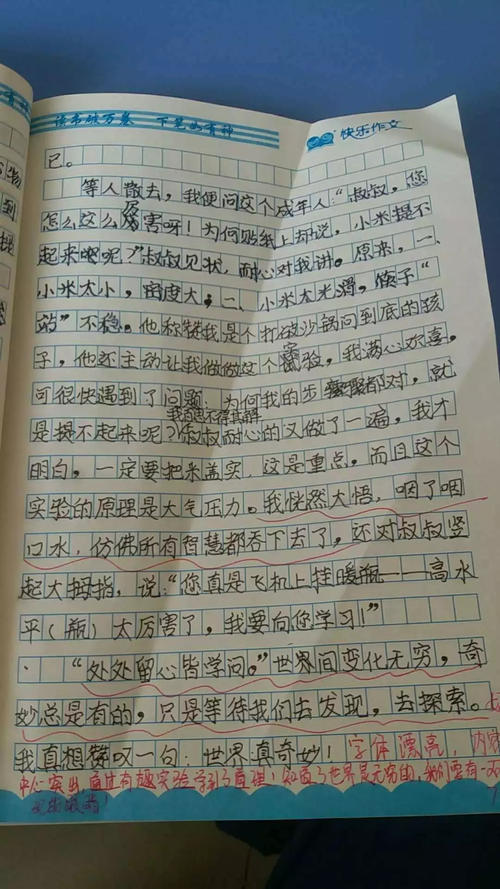 读书破万卷 下笔如有神
快乐作文
己。
等人散去，我便问这个成年人：“叔叔，您
怎么这么厉害呀！为何贴纸上却说，小米提不
起来呢？”叔叔见状，耐心对我讲。原来，一、
小米太小，密度大，二、小米太光滑，筷子“
站”不稳。他称赞我是个打破沙锅问到底的孩
子，他还主动让我做做这个实验，我满心欢喜。
可很快遇到了问题：为何我的步骤都对，就
是提不起来呢？我百思不得其解叔叔耐心的又做了一遍，我才
明白，一定要把米盖实，这是重点，而且这个
实验的原理是大气压力。我恍然大悟，咽了咽
口水，仿佛所有智慧都吞下去了，还对叔叔竖
起大拇指，说：“您真是飞机上挂暖瓶——高水
平（瓶）太厉害了，我要向您学习！”
“处处留心皆学问。”世界间变化无穷，奇
妙总是有的，只是等待我们去发现，去探索。
我真想赞叹一句：世界真奇妙！字体漂亮，内容
中心突出，通过有趣实验学到了真理！知道了世界是无穷的，我们要有一双